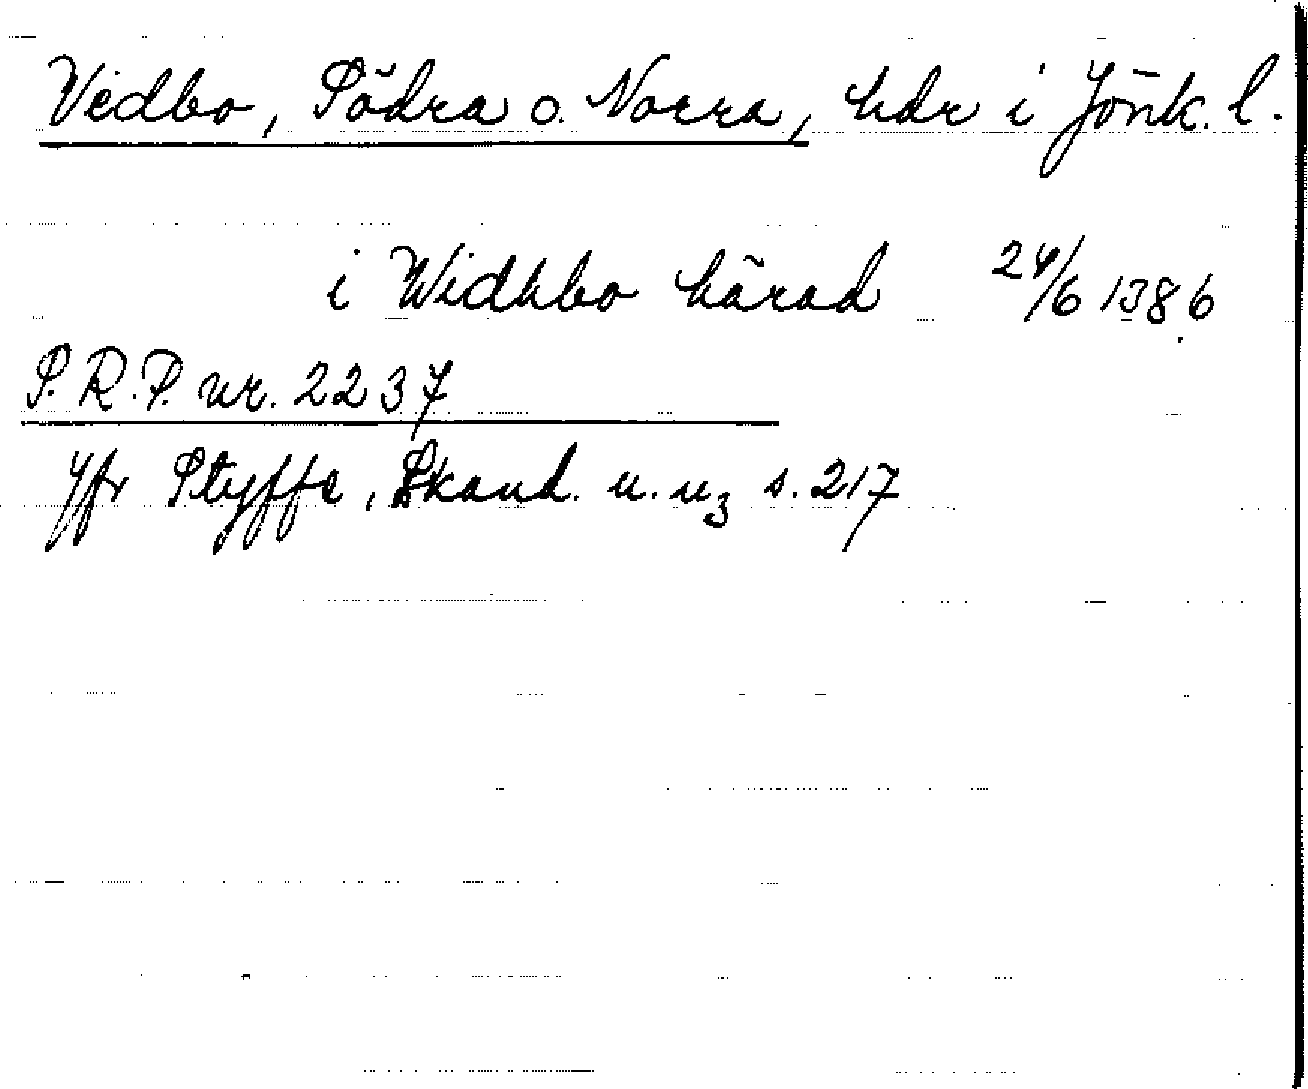 Vedbo, Södra o. Norra, hdr i Jönk. l.
i Widhbo härad 24/6 1386
S.R.P. nr. 2237
Jfr Styffe, Skand. u. u3 s. 217